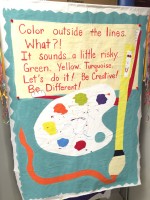 Color outside the lines.
What?!
It sounds a little risky.
Green, Yellow, Turquoise,
Let's do it! Be Creative!
Be Different!